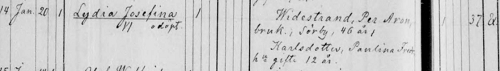 14 Jan. 20 1 Lydia Josefina 1 Widestrand, Per Aron,
adopt. bruk., Sörby, 46 år, 1 37
Karlsdotter, Paulina
gifte 12 år.